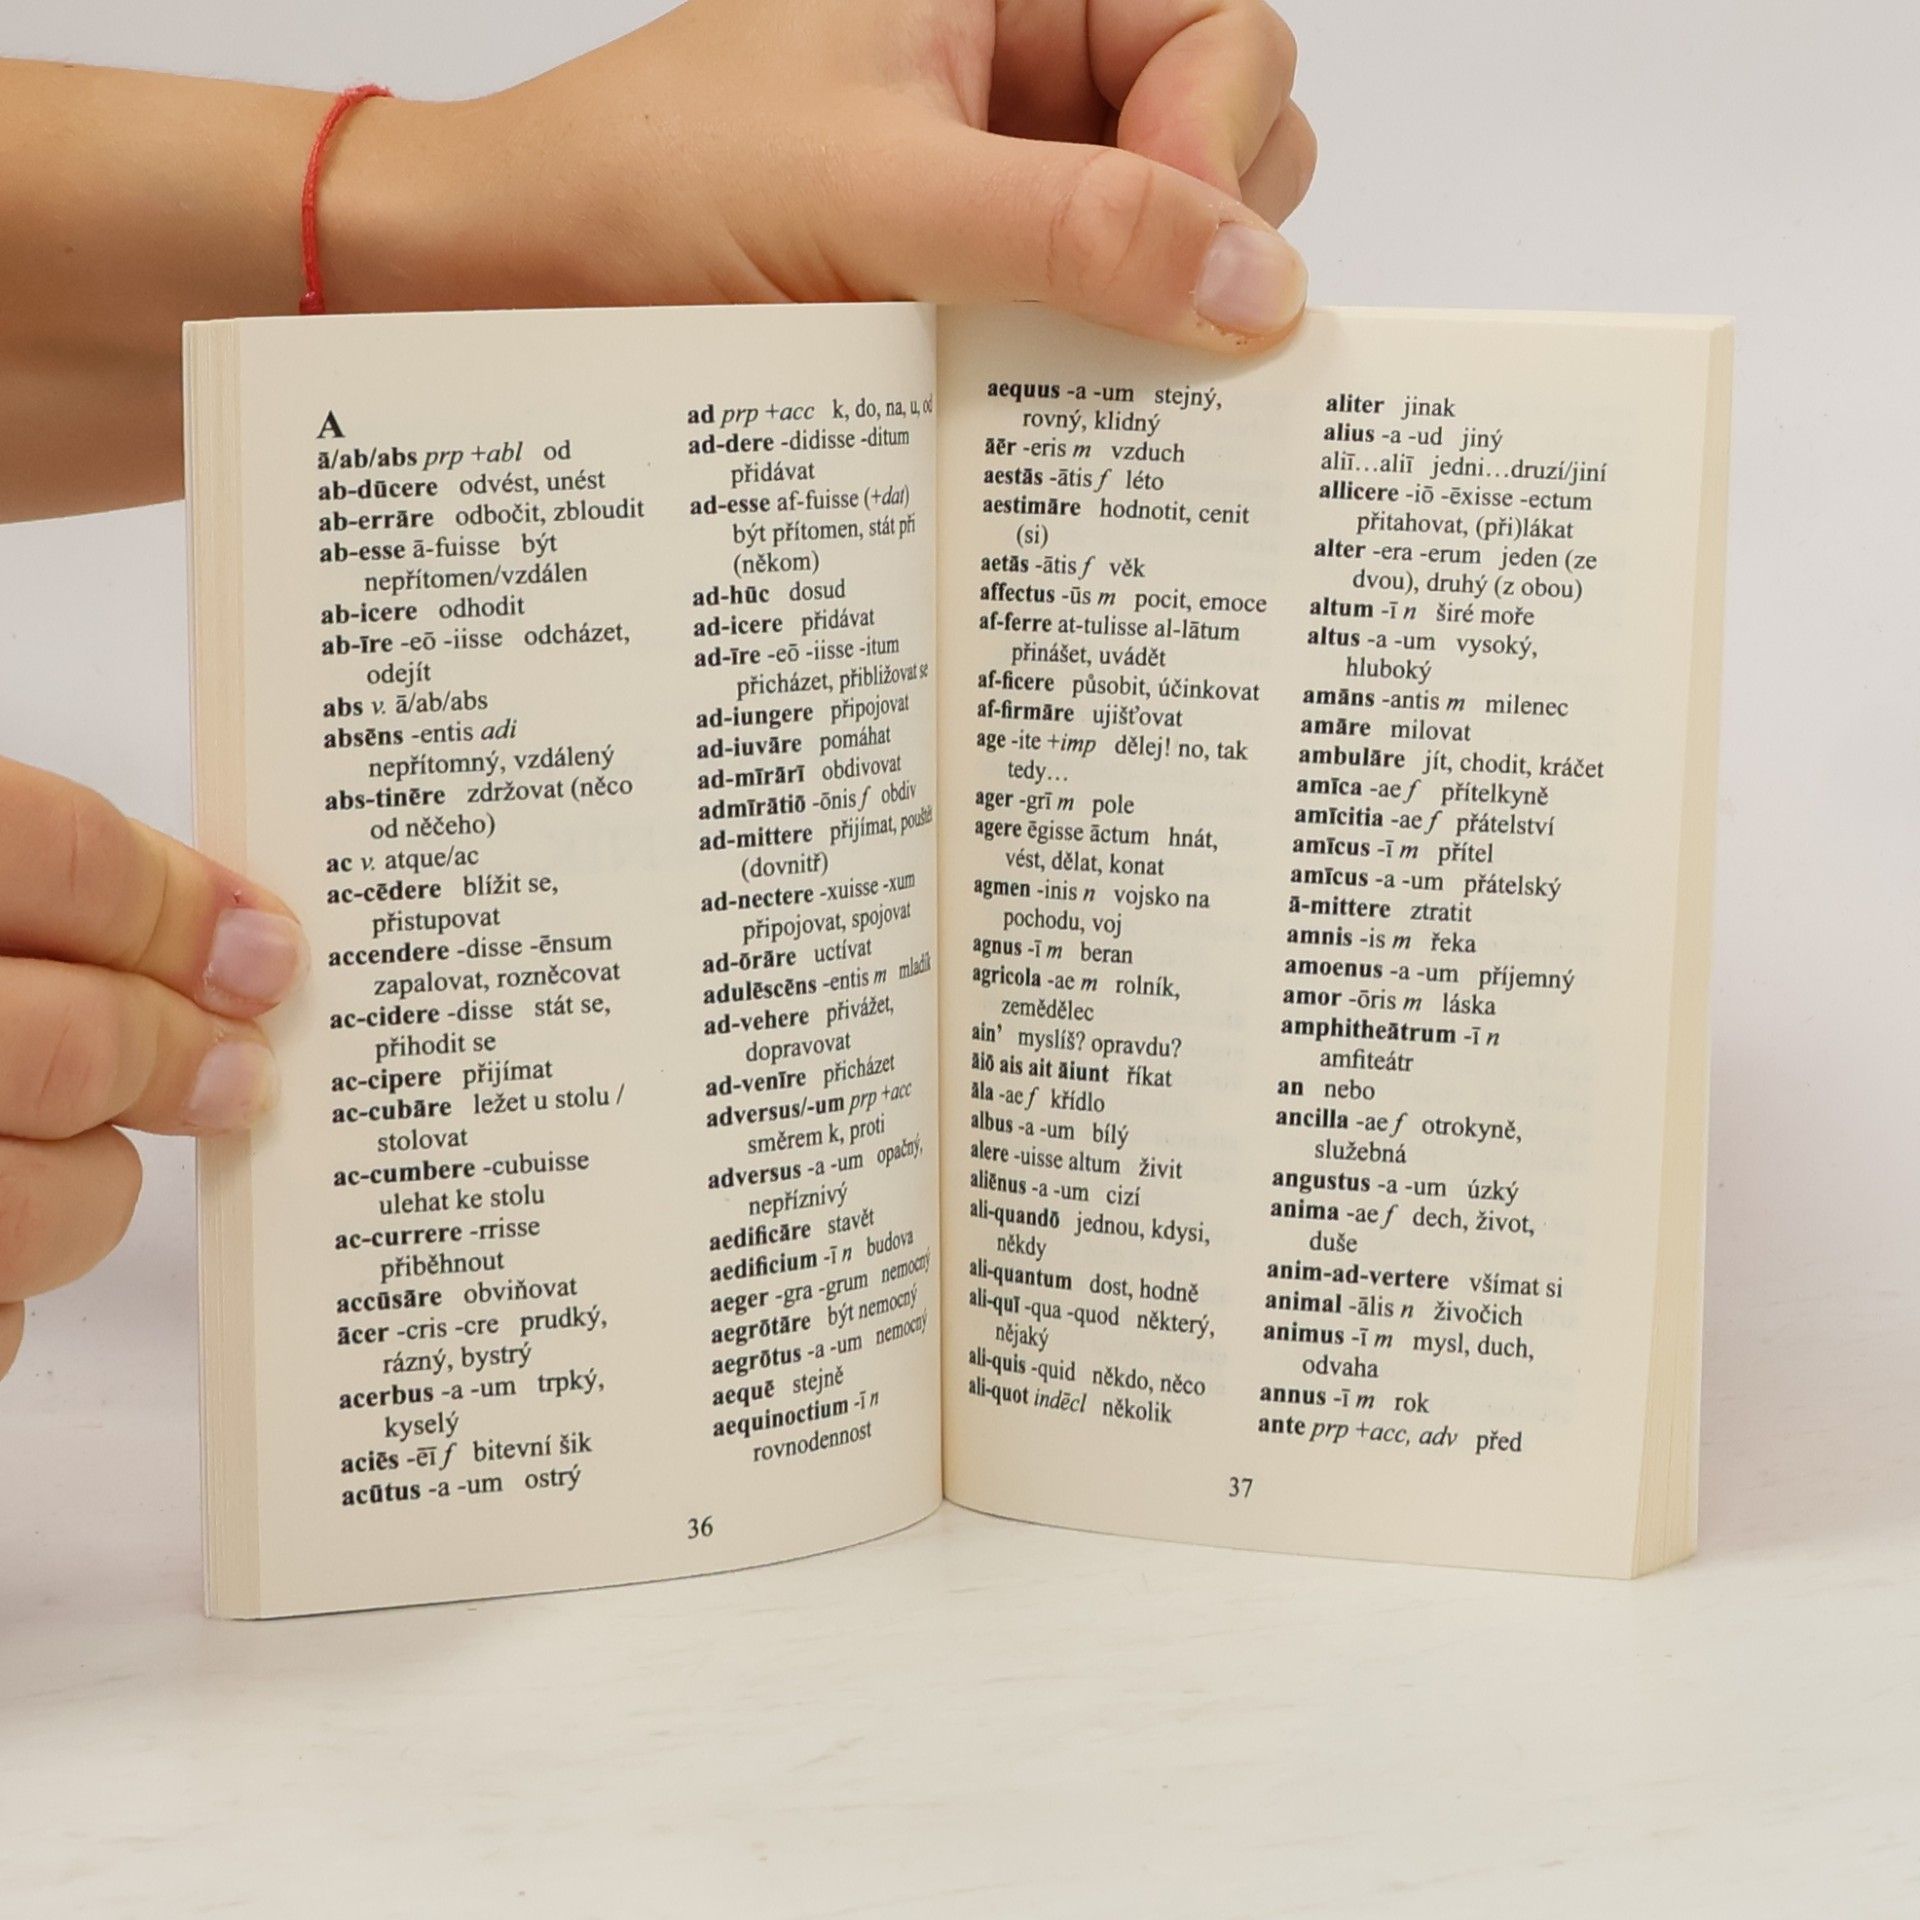 A
ā/ab/abs prp +abl od
ab-dūcere odvést, unést
ab-errāre odbočit, zbloudit
ab-esse ā-fuisse být
nepřítomen/vzdálen
ab-icere odhodit
ab-īre -eō -iisse odcházet,
odejít
abs v. ā/ab/abs
absēns -entis adi
nepřítomný, vzdálený
abs-tinēre zdržovat (něco
od něčeho)
ac v. atque/ac
ac-cēdere blížit se,
přistupovat
accendere -disse -ēnsum
zapalovat, rozněcovat
ac-cidere -disse stát se,
přihodit se
ac-cipere přijímat
ac-cubāre ležet u stolu /
stolovat
ac-cumbere -cubuisse
ulehat ke stolu
ac-currere -rrisse
přiběhnout
accūsāre obviňovat
ācer -cris -cre prudký,
rázný, bystrý
acerbus -a -um trpký,
kyselý
aciēs -ēī f bitevní šik
acūtus -a -um ostrý
ad prp +acc k, do, na, u, od
ad-dere -didisse -ditum
přidávat
ad-esse af-fuisse (+dat)
být přítomen, stát při
(někom)
ad-hūc dosud
ad-icere přidávat
ad-īre -eō -iisse -itum
přicházet, přibližovat se
ad-iungere připojovat
ad-iuvāre pomáhat
ad-mīrārī obdivovat
admīrātiō -ōnis f obdiv
ad-mittere přijímat, pouštět
(dovnitř)
ad-nectere -xuisse -xum
připojovat, spojovat
ad-ōrāre uctívat
adulēscēns -entis m mladík
ad-vehere přivážet,
dopravovat
ad-venīre přicházet
adversus/-um prp +acc
směrem k, proti
adversus -a -um opačný,
nepříznivý
aedificāre stavět
aedificium -ī n budova
aeger -gra -grum nemocný
aegrōtāre být nemocný
aegrōtus -a -um nemocný
aequē stejně
aequinoctium -ī n
rovnodennost
36
aequus -a -um stejný,
rovný, klidný
āēr -eris m vzduch
aestās -ātis f léto
aestimāre hodnotit, cenit
(si)
aetās -ātis f věk
affectus -ūs m pocit, emoce
af-ferre at-tulisse al-lātum
přinášet, uvádět
af-ficere působit, účinkovat
af-firmāre ujišťovat
age -ite +imp dělej! no, tak
tedy…
ager -grī m pole
agere ēgisse āctum hnát,
vést, dělat, konat
agmen -inis n vojsko na
pochodu, voj
agnus -ī m beran
agricola -ae m rolník,
zemědělec
ain’ myslíš? opravdu?
āiō ais ait āiunt říkat
āla -ae f křídlo
albus -a -um bílý
alere -uisse altum živit
aliēnus -a -um cizí
ali-quandō jednou, kdysi,
někdy
ali-quantum dost, hodně
ali-quī -qua -quod některý,
nějaký
ali-quis -quid někdo, něco
ali-quot indēcl několik
aliter jinak
alius -a -ud jiný
aliī…aliī jedni…druzí/jiní
allicere -iō -ēxisse -ectum
přitahovat, (při)lákat
alter -era -erum jeden (ze
dvou), druhý (z obou)
altum -ī n širé moře
altus -a -um vysoký,
hluboký
amāns -antis m milenec
amāre milovat
ambulāre jít, chodit, kráčet
amīca -ae f přítelkyně
amīcitia -ae f přátelství
amīcus -ī m přítel
amīcus -a -um přátelský
ā-mittere ztratit
amnis -is m řeka
amoenus -a -um příjemný
amor -ōris m láska
amphitheātrum -ī n
amfiteátr
an nebo
ancilla -ae f otrokyně,
služebná
angustus -a -um úzký
anima -ae f dech, život,
duše
anim-ad-vertere všímat si
animal -ālis n živočich
animus -ī m mysl, duch,
odvaha
annus -ī m rok
ante prp +acc, adv před
37